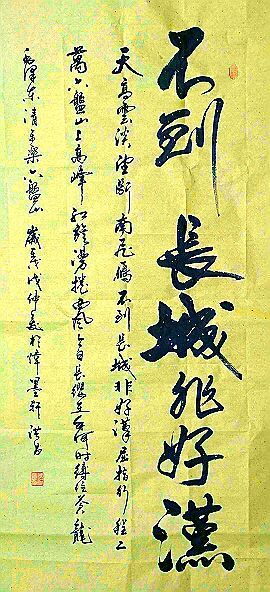 不到長城非好漢
天高雲淡望斷南飛雁不到長城非好漢屈指行程二
萬六盤山上高峰紅旗漫捲西風今日長纓在手何時縛住蒼龍
毛澤東清平樂六盤山 歲戊仲夏於墨軒